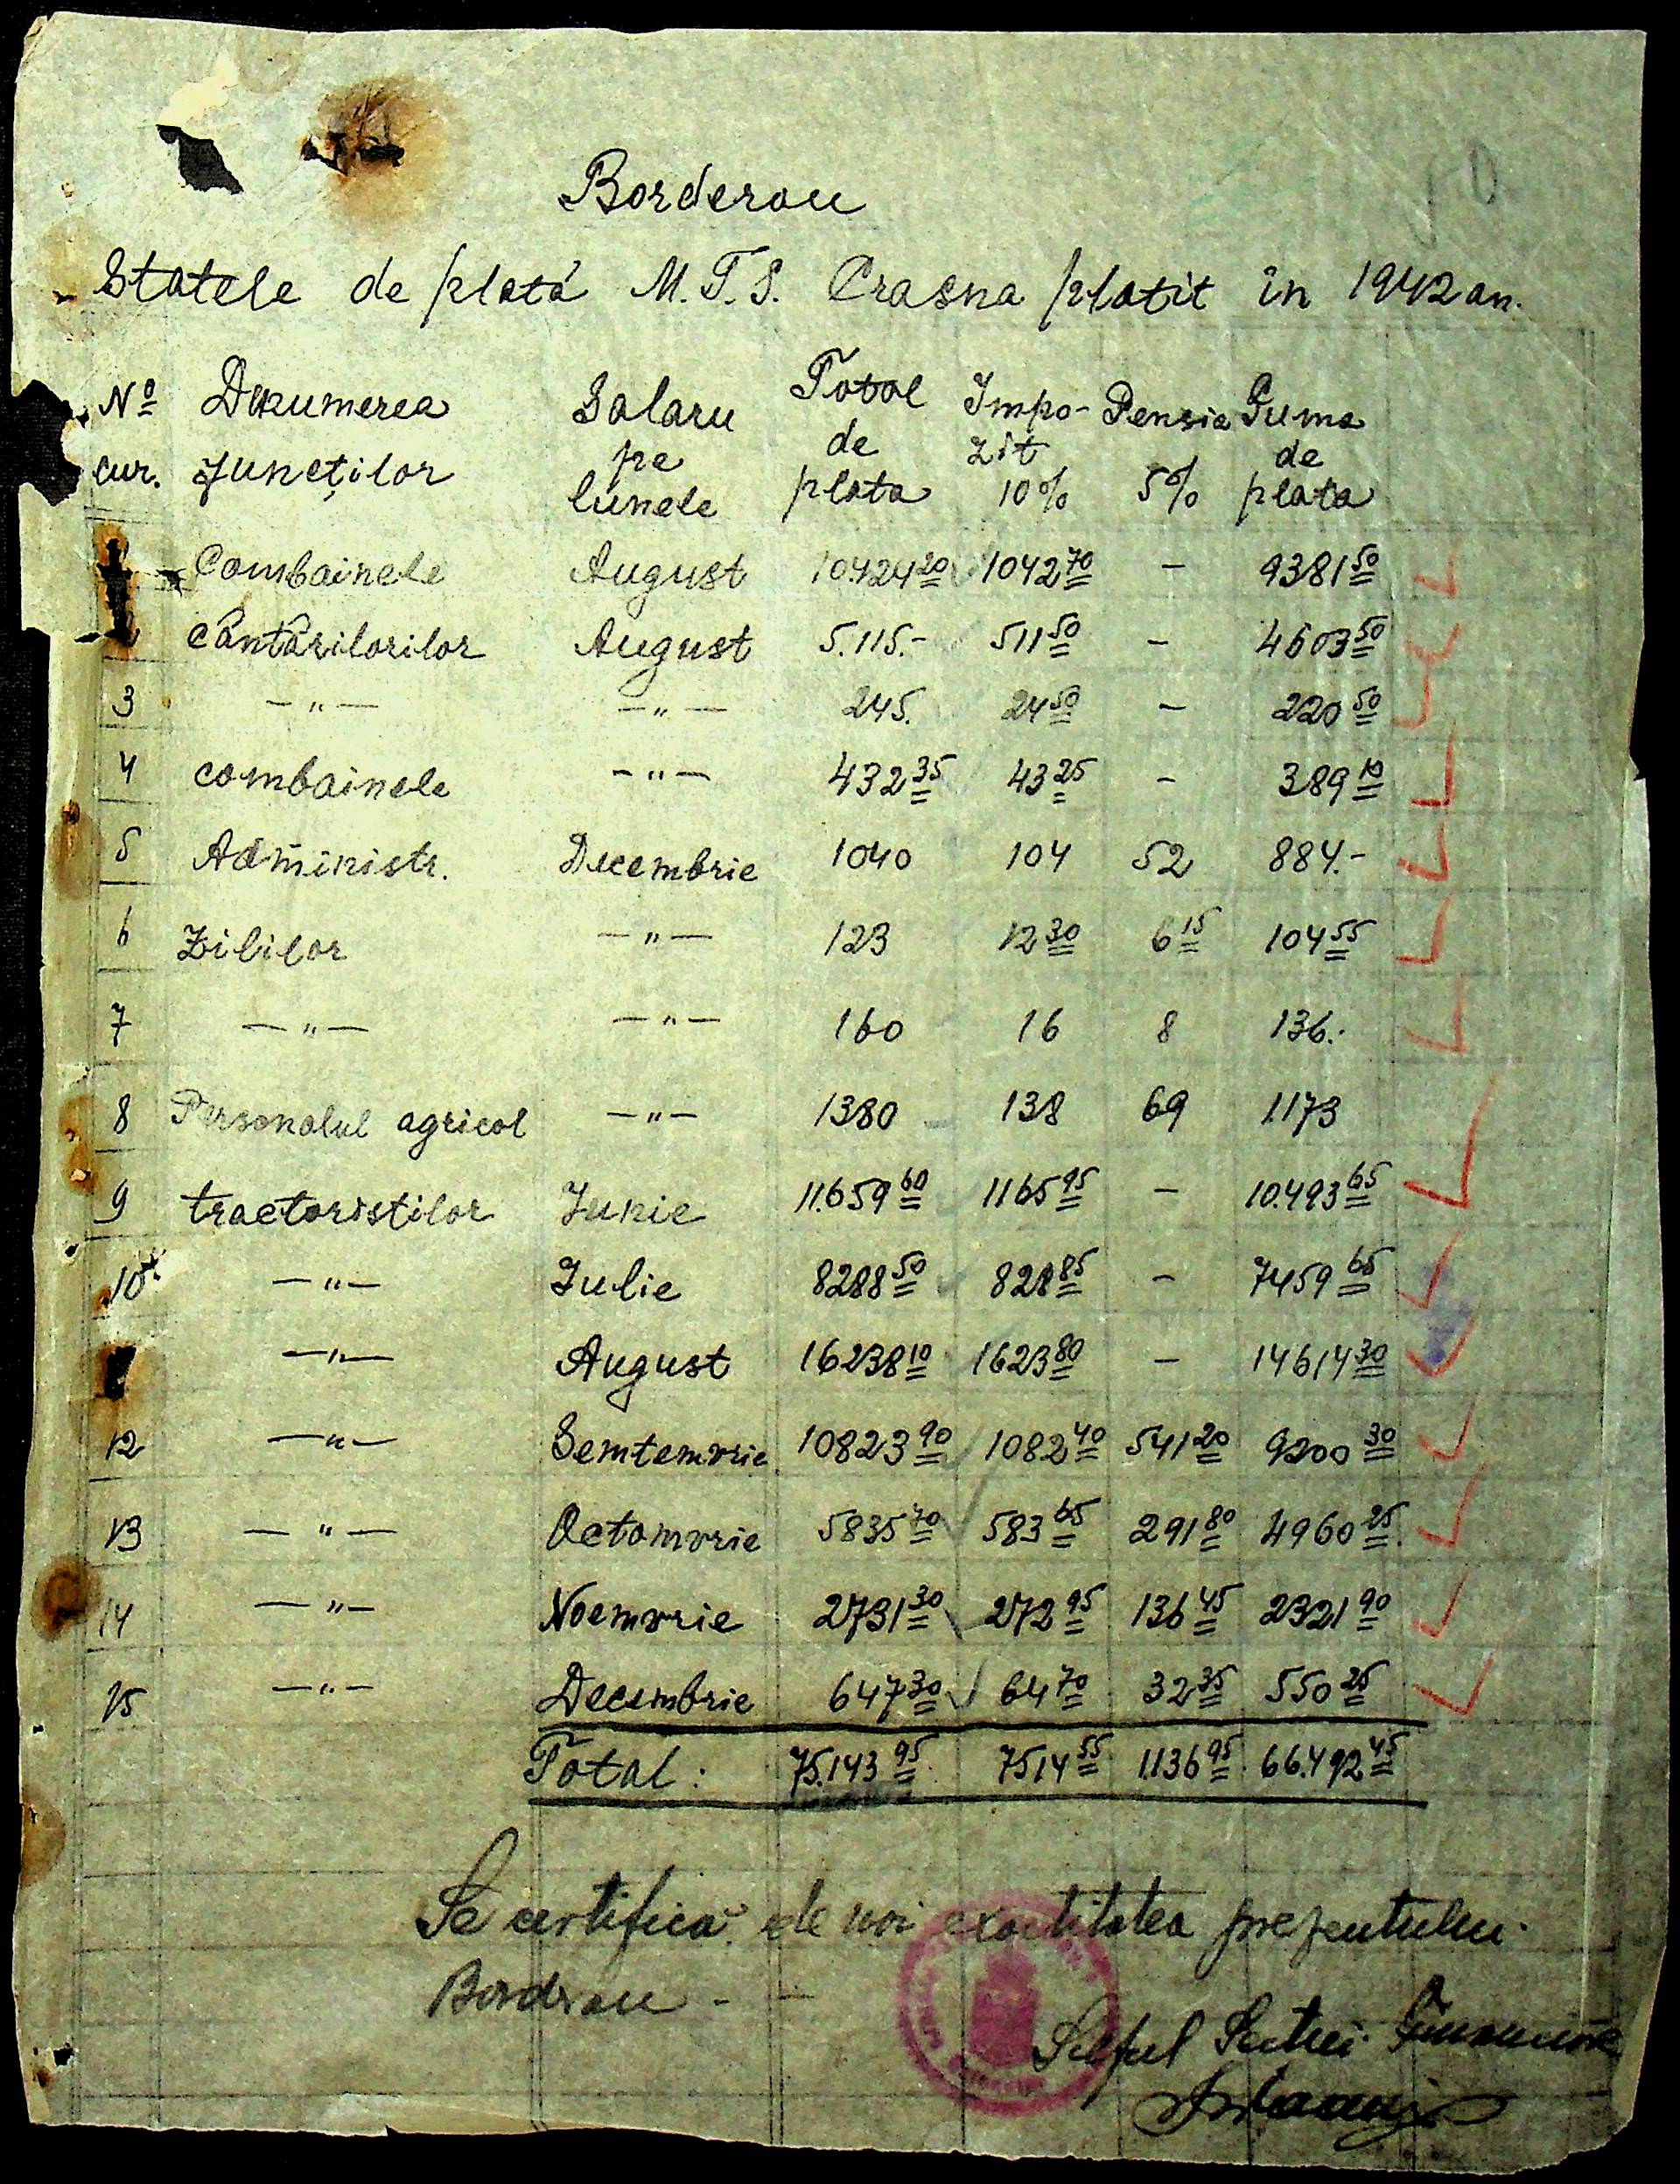 Borderou
Statele de plată M.T.S. Crasna platit in 1942 an.
Nº cur. Dnumerea funcților Salaru pe lunele Total de plata Impo-zit 10% Pensia 5% Suma de plata
Combainele August 10.424 20 1042 70 - 9381 50
Cântărilorilor August 5.115.- 511 50 - 4603 50
3 -"- -"- 245. 24 50 - 220 50
4 combainele -"- 432 35 43 25 - 389 10
5 Administr. Decembrie 1040 104 52 884.-
6 Zililor -"- 123 12 30 6 15 104 55
7 -"- -"- 160 16 8 136.-
8 Personalul agricol -"- 1380 138 69 1.173
9 tractoristilor Iunie 11.659 60 1165 95 - 10.493 65
10 -"- Iulie 8288 50 828 85 - 7459 65
-"- August 16238 10 1623 80 - 14614 30
12 -"- Semtemvrie 10823 90 1082 40 541 20 9200 30
13 -"- Octomvrie 5835 70 583 65 291 80 4960 25
14 -"- Noemvrie 2731 30 272 95 136 45 2321 90
15 -"- Decembrie 647 30 64 70 32 35 550 25
Total: 75.143 95 7514 55 1.136 95 66.492 45
Se certifică de noi exactitatea prezentului
Borderou - -
Seful Sectiei